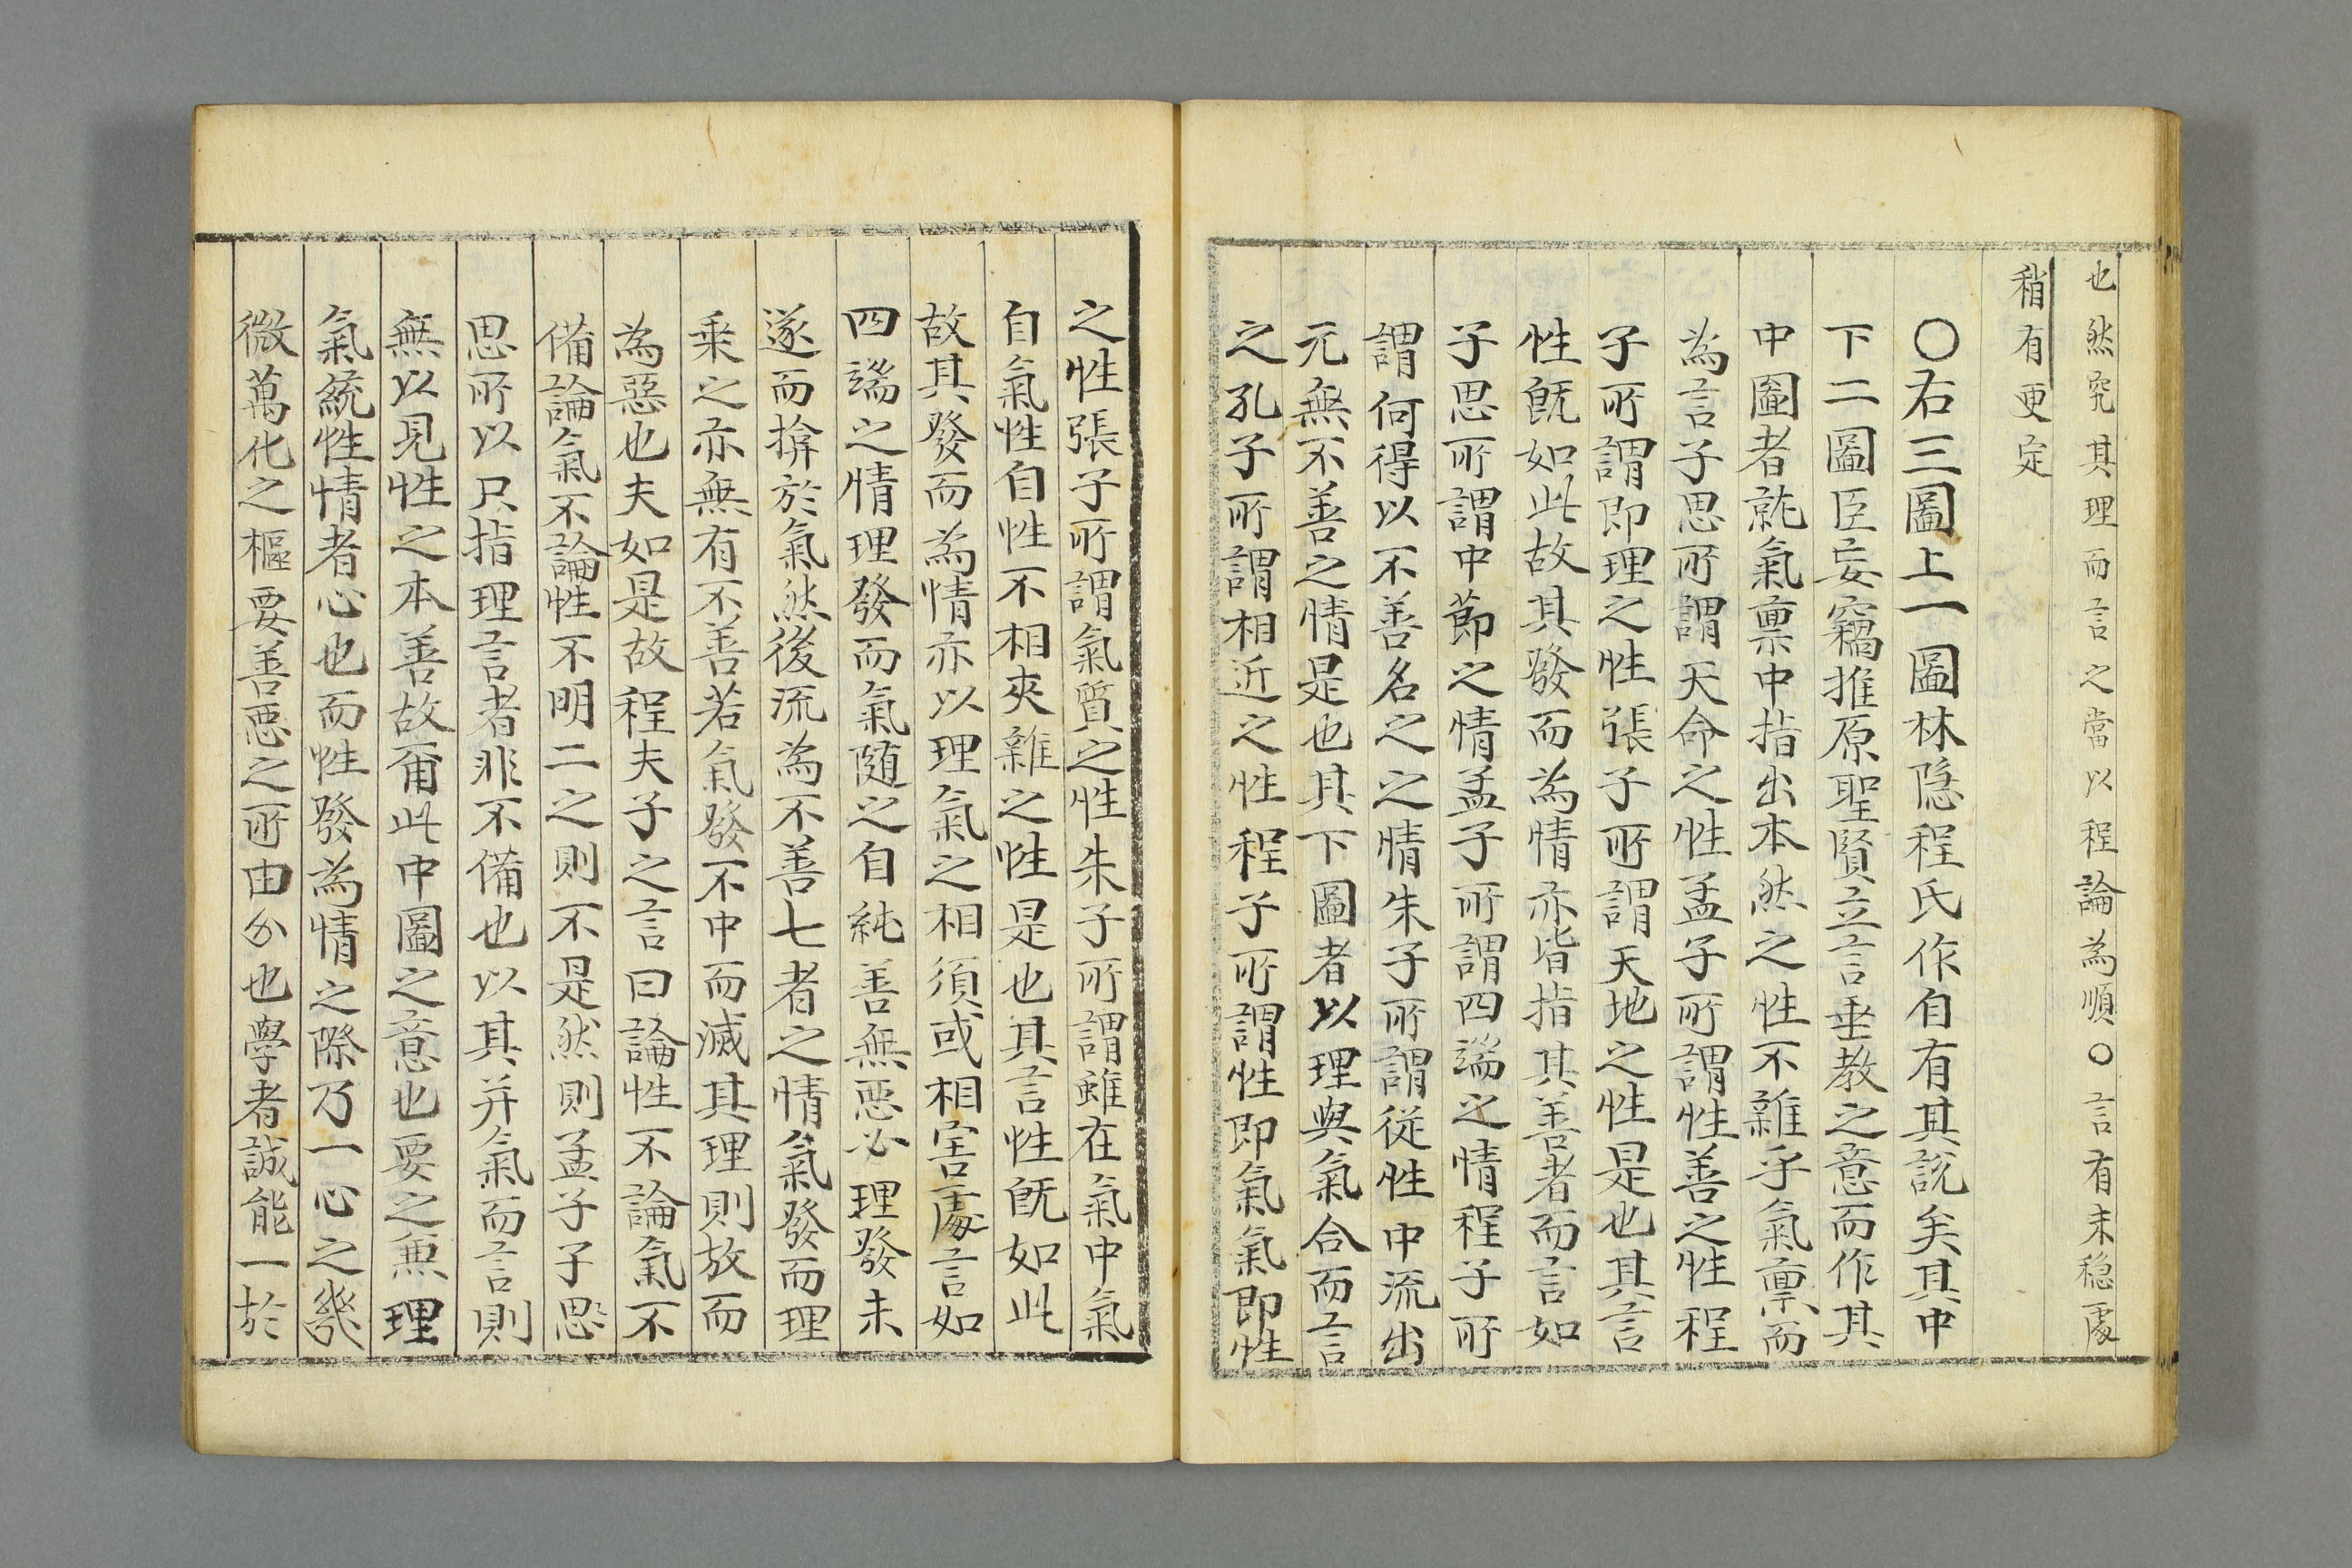 也然究其理而言之當以程論為順○言有未稳處
稍有更定
○右三圖上一圖林隐程氏作自有其說矣其中
下二圖臣妄竊推原聖賢立言垂教之意而作其
中圖者就氣禀中指出本然之性不雜乎氣禀而
為言子思所謂天命之性孟子所謂性善之性程
子所謂即理之性張子所謂天地之性是也其言
性旣如此故其發而為情亦皆指其善者而言如
子思所謂中節之情孟子所謂四端之情程子所
謂何得以不善名之之情朱子所謂從性中流出
元無不善之情是也其下圖者以理與氣合而言
之孔子所謂相近之性程子所謂性即氣氣即性
之性張子所謂氣質之性朱子所謂雖在氣中氣
自氣性自性不相夾雜之性是也其言性旣如此
故其發而為情亦以理氣之相須或相害處言如
四端之情理發而氣随之自純善無惡必理發未
遂而揜於氣然後流為不善七者之情氣發而理
乗之亦無有不善若氣發不中而滅其理則放而
為惡也夫如是故程夫子之言曰論性不論氣不
備論氣不論性不明二之則不是然則孟子子思
思所以只指理言者非不備也以其并氣而言則
無以見性之本善故爾此中圖之意也要之無理
氣統性情者心也而性發為情之際乃一心之幾
微萬化之樞要善惡之所由分也學者誠能一於